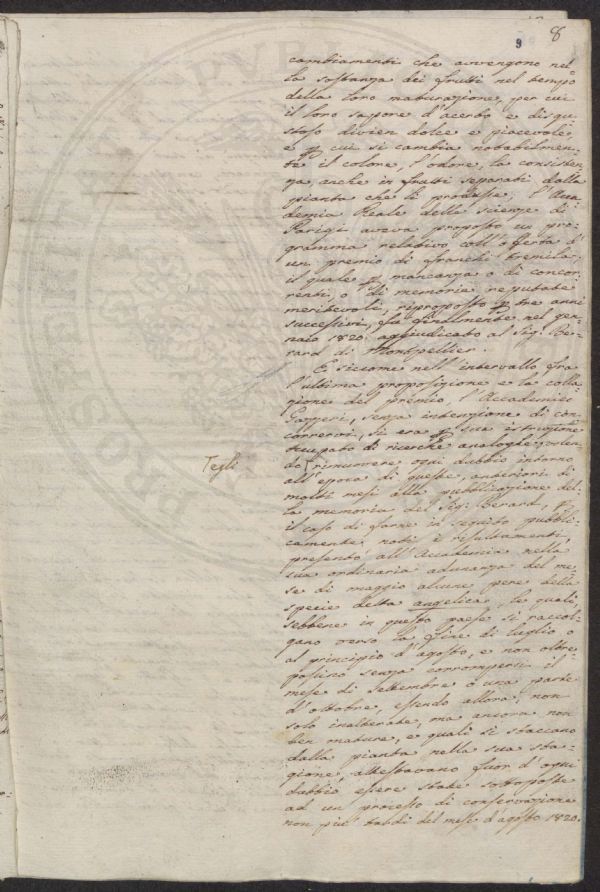 9 8
cambiamenti che avvengono nel
la sostanza dei frutti nel tempo
della loro maturazione, per cui
il loro sapore d'acerbo e disgu
stoso divien dolce e piacevole,
e p cui si cambia notabilmen-
te il colore, l'odore, la consisten
za, anche in frutti separati dalla
pianta che li produsse; l'Acca
demia Reale delle scienze di
Parigi aveva proposto un pro-
gramma relativo coll'offerta d'
un premio di franchi tremila,
il quale p mancanza o di concor
renti, o di memorie reputate
meritevoli, riproposto p tre anni
successivi, fu finalmente nel gen
naio 1820 aggiudicato al Sig. Be-
rard di Montpellier.
E siccome nell'intervallo fra
l'ultima proposizione e la colla
zione del premio, l'Accademico
Gazzeri, senza intenzione di con
correrci, si era p sua istruzione
occupato di ricerche analoghe; volen
Tegli
do rimuovere ogni dubbio intorno
all'epoca di queste, anteriori di
molti mesi alla pubblicazione del-
la memoria del Sig. Berard, p
il caso di farne in seguito pubbli-
camente noti i resultamenti,
presentò all'Accademia nella
sua ordinaria adunanza del me
se di maggio alcune pere della
specie detta angelica, le quali
sebbene in questo paese si raccol-
gano verso la fine di luglio o
al principio d'agosto, e non oltre
passino senza corrompersi il
mese di Settembre o una parte
d'ottobre, essendo allora, non
solo inalterate, ma ancora non
ben mature, e quali si staccano
dalla pianta nella sua sta-
gione, attestavano fuor d'ogni
dubbio essere state sottoposte
ad un processo di conservazione
non più tardi del mese d'agosto 1820.